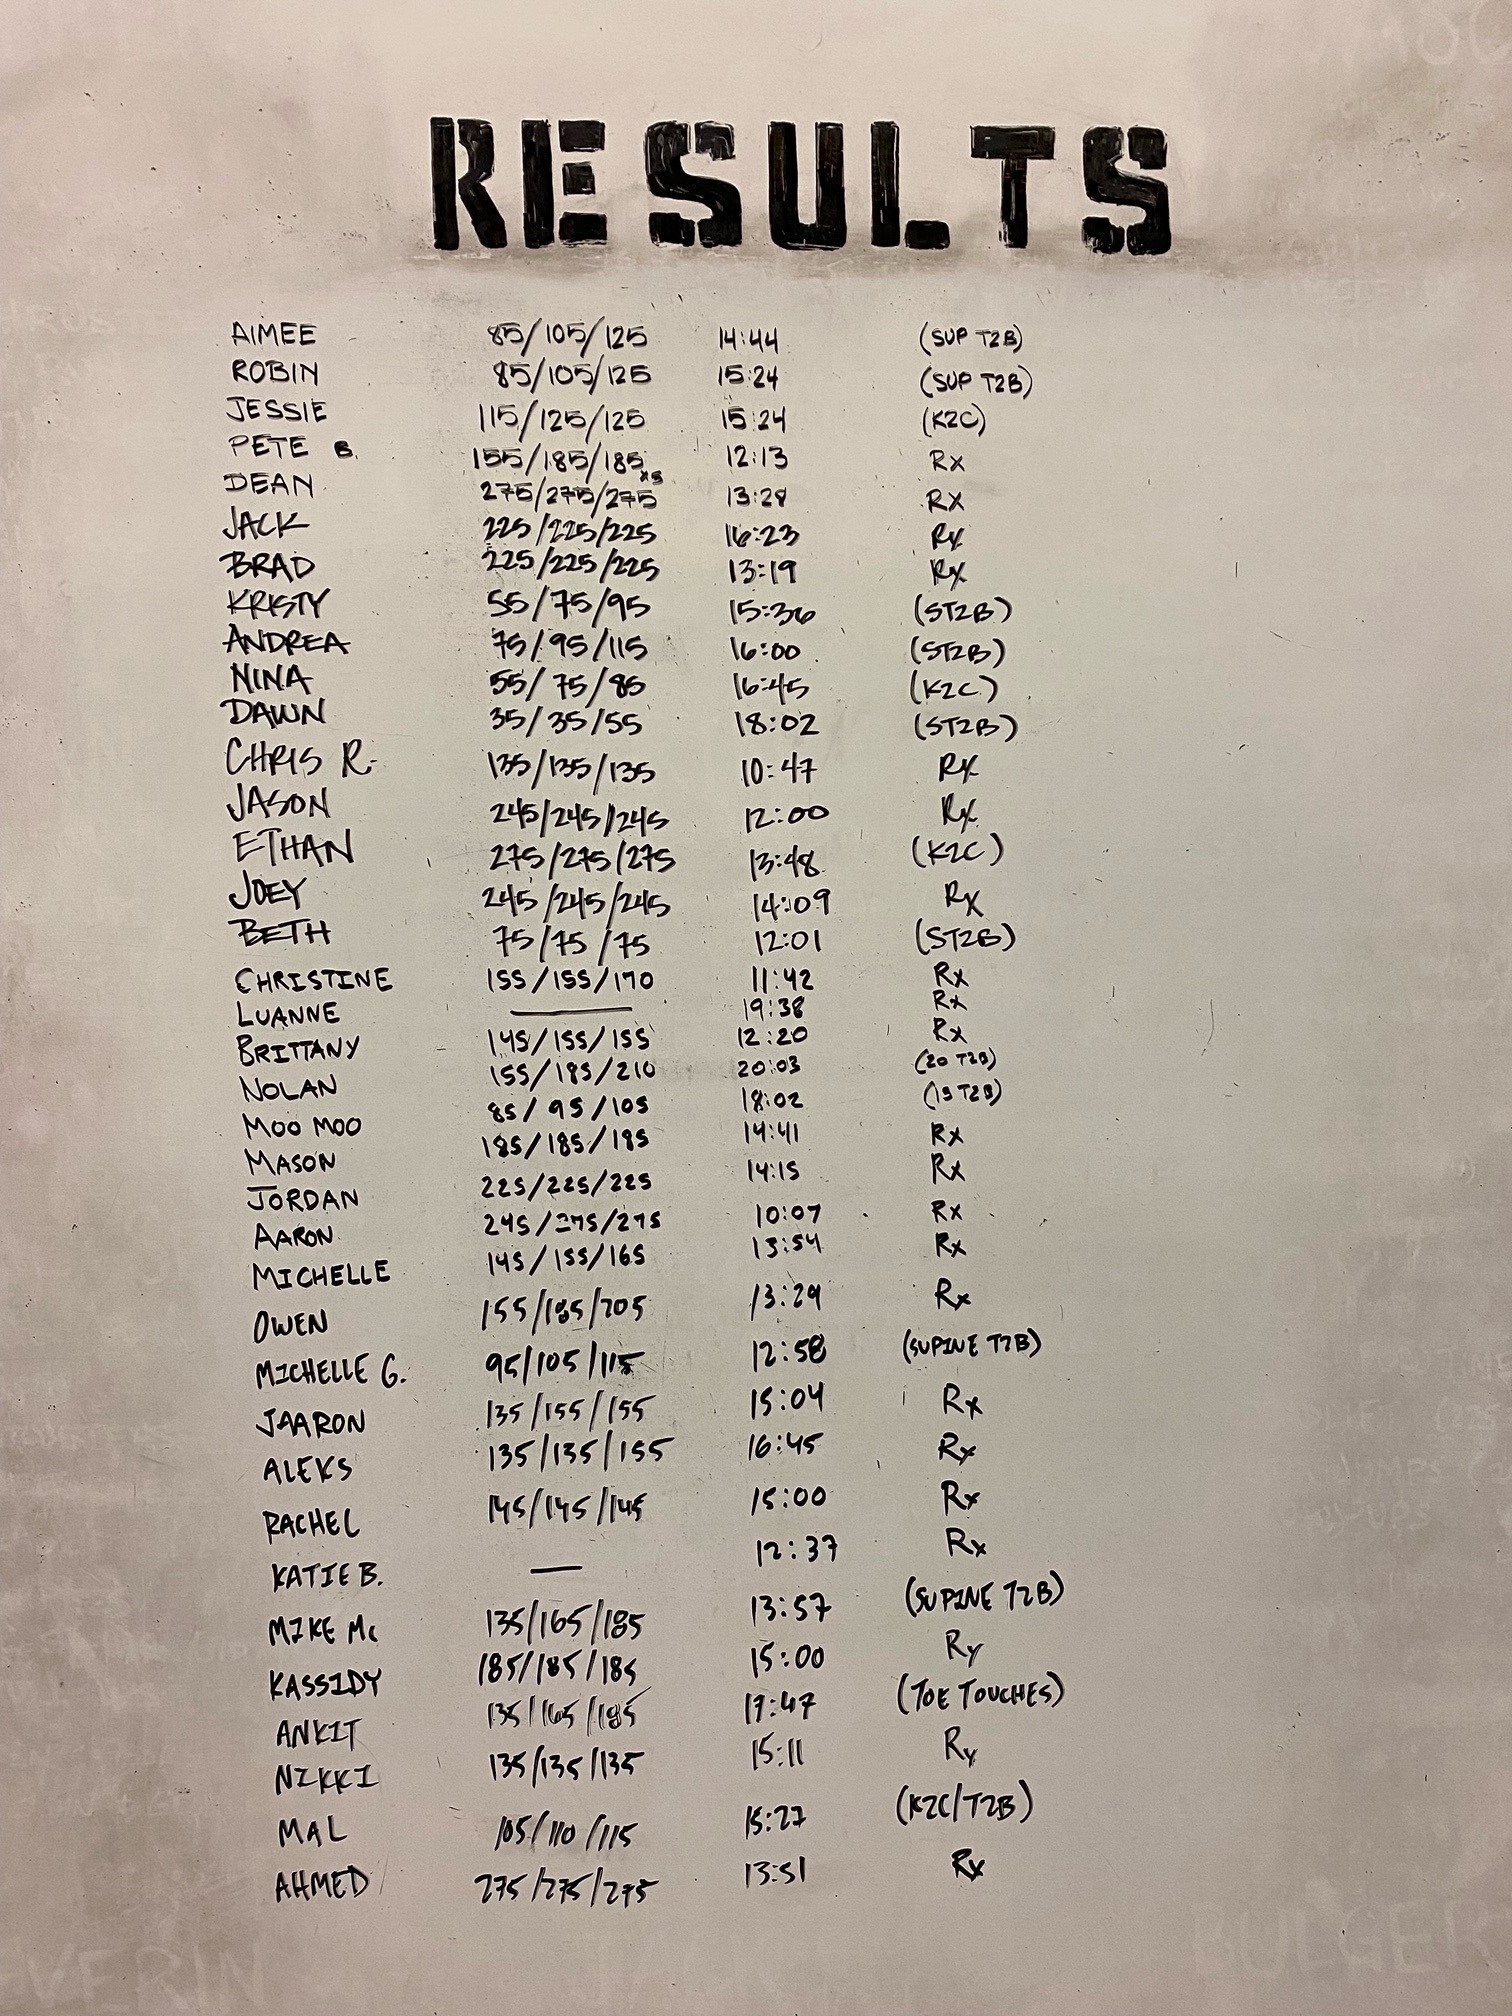 RESULTS
AIMEE 85/105/125 14:44 (SUP T2B)
ROBIN 85/105/125 15:24 (SUP T2B)
JESSIE 115/125/125 15:24 (K2C)
PETE B. 155/185/185 12:13 Rx
x3
DEAN 275/275/275 13:29 Rx
JACK 225/225/225 16:23 Rx
BRAD 225/225/225 13:19 Rx
KRISTY 55/75/95 15:36 (ST2B)
ANDREA 75/95/115 16:00 (ST2B)
NINA 55/75/85 16:45 (K2C)
DAWN 35/35/55 18:02 (ST2B)
CHRIS R. 135/135/135 10:47 Rx
JASON 245/245/245 12:00 Rx
ETHAN 275/275/275 13:48 (K2C)
JOEY 245/245/245 14:09 Rx
BETH 75/75/75 12:01 (ST2B)
CHRISTINE 155/155/170 11:42 Rx
LUANNE — 19:38 Rx
BRITTANY 145/155/155 12:20 Rx
NOLAN 155/185/210 20:03 (20 T2B)
MOO MOO 85/95/105 18:02 (15 T2B)
MASON 185/185/185 14:41 Rx
JORDAN 225/225/225 14:15 Rx
AARON 245/275/275 10:07 Rx
MICHELLE 145/155/165 13:54 Rx
OWEN 155/185/205 13:29 Rx
MICHELLE G. 95/105/115 12:58 (SUPINE T2B)
JAARON 135/155/155 15:04 Rx
ALEKS 135/135/155 16:45 Rx
RACHEL 145/145/145 15:00 Rx
KATIE B. — 12:37 Rx
MIKE Mc 135/165/185 13:57 (SUPINE T2B)
KASSIDY 185/185/185 15:00 Rx
ANKIT 135/165/185 17:47 (TOE TOUCHES)
NIKKI 135/135/135 15:11 Rx
MAL 105/110/115 15:27 (K2C/T2B)
AHMED 275/275/275 13:51 Rx
VERIN
BULGER